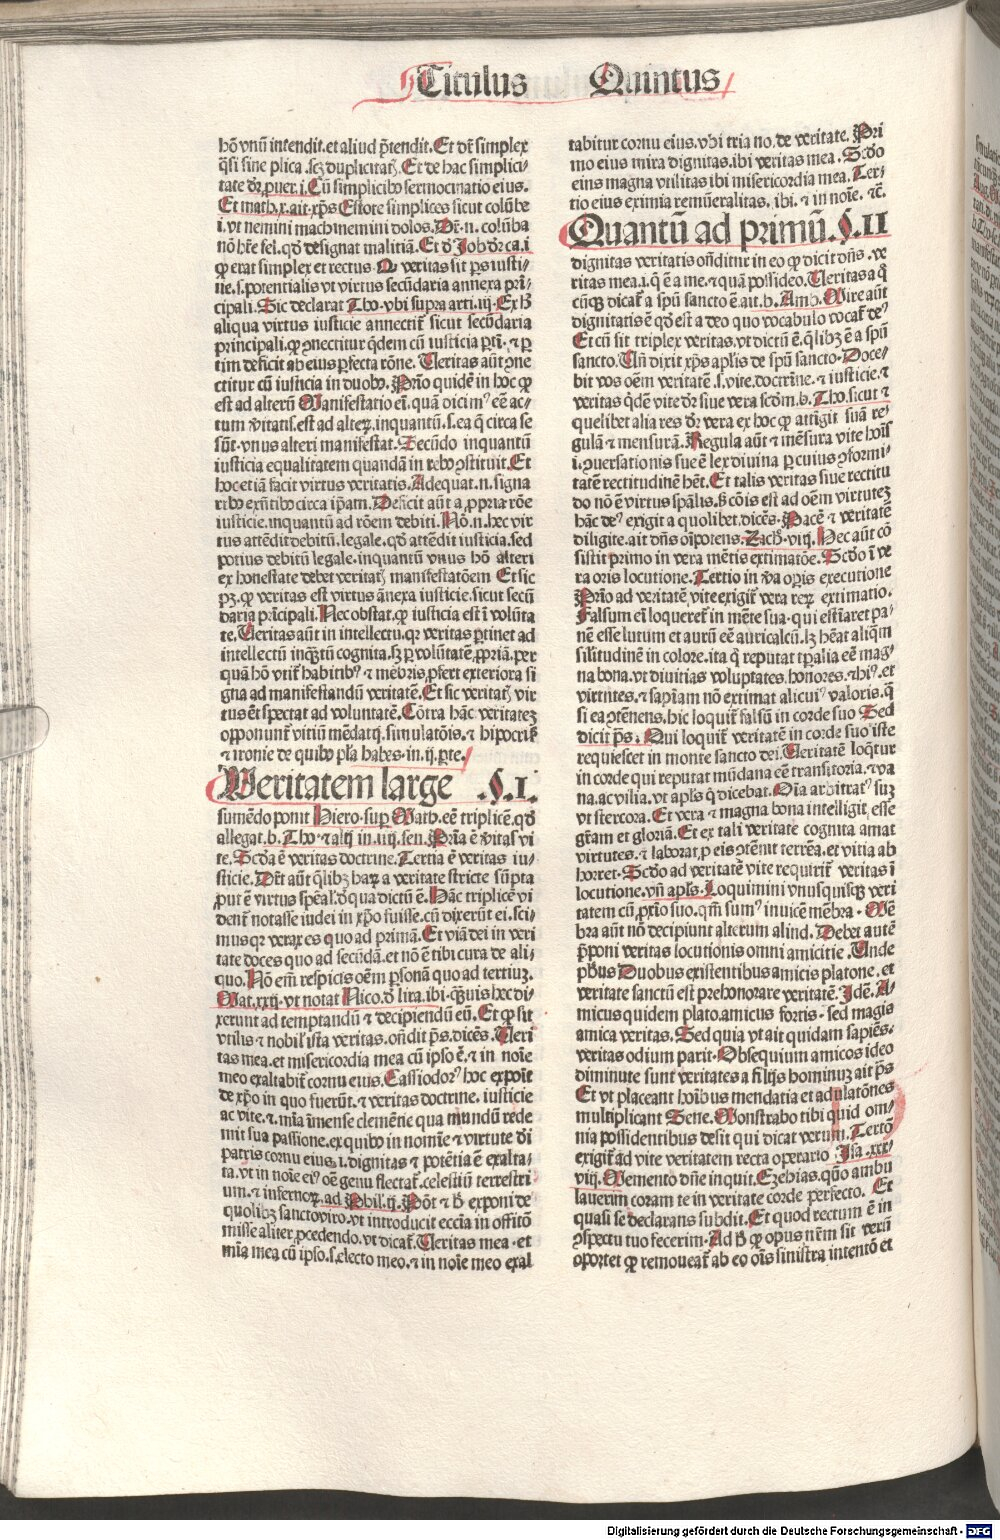 Titulus Quintus
hō vnū intendit. et aliud p̄tendit. Et dr̄ simplex
q̄si sine plica .scꝫ duplicitatꝭ. Et de hac simplici-
tate dr̄. puer. i. Cū simplicibꝰ sermocinatio eius.
Et math. x. ait xp̄s Estote simplices sicut colūbe
i. vt nemini machinemini dolos. Dr̄. n. colūba
nō hr̄e fel. qd̓ designat malitiā. Et d̓ Job dr̄ ca. i
ꝙ erat simplex et rectus. Ꝙ veritas sit ꝑs iusti-
tie. s. potentialis vt virtus secūdaria annexa prī-
cipali. Sic declarat Tho. vbi supra arti. iij. Ex hͦ
aliqua virtus iusticie annectit̄ sicut secūdaria
principali. ꝙ ꝯnectitur qͥdem cū iusticia ꝑti. ⁊ ꝑ
tim deficit ab eius ꝑfecta rōne. Veritas aūt ꝯne
ctitur cū iusticia in duobꝰ. Prīo quidē in hoc ꝙ
est ad alterū Manifestatio eī. quā dicimꝰ eē ac-
tum v̓itatis. est ad alteꝝ. inquantū. s. ea q̄ circa se
sūt. vnus alteri manifestat. Secūdo inquantū
iusticia equalitatem quandā in rebꝰ ꝯstituit. Et
hoc etiā facit virtus veritatis. Adequat. n. signa
rebꝰ exn̄tibꝰ circa ip̄am. Deficit aūt a ꝓpria rōe
iusticie. inquantū ad rōem debiti. Nō. n. hec vir
tus attēdit debitū. legale. qd̓ attēdit iusticia. sed
potius debitū legale. inquantū vnus hō alteri
ex honestate debet veritatꝭ manifestatōem Et sic
pꝫ. ꝙ veritas est virtus ānexa iusticie. sicut secū
daria prīcipali. Nec obstat. ꝙ iusticia est ī volūta
te. Veritas aūt in intellectu. qr veritas ꝑtinet ad
intellectū inqᷓtū cognita. sꝫ ꝑ volūtatē ꝓpriā. per
quā hō vtit̄ habitibꝰ ⁊ mēbris ꝓfert exteriora si
gna ad manifestandū veritatē. Et sic veritatꝭ vir
tus ēt spectat ad voluntatē. Cōtra hāc veritateꝫ
opponunt̄ vitiū mēdatij. simulatōis. ⁊ hipocriẜ
⁊ ironie de quibꝰ pl̄a habes. in. ij. ꝑte.
Veritatem large .§. I.
sumēdo ponit Hiero. suꝑ Math. eē triplicē. qd̓
allegat. b. Tho. ⁊ alij in. iiij. sen. Prīa ē v̓itas vi
te. Scd̓a ē veritas doctrine. Tertia ē veritas iu-
sticie. Dr̄t aūt q̄libꝫ haꝝ a veritate stricte sūpta
ꝓut ē virtus sp̄eal̓. d̓ qua dictū ē. Hāc triplicē vi
dent̄ notasse iudei in xp̄o fuisse. cū dixerūt ei. sci-
mus qr verax es quo ad primā. Et viā dei in veri
tate doces quo ad secūdā. et nō ē tibi cura de ali-
quo. Nō em̄ respicis oēm ꝑsonā quo ad tertiuꝫ.
Mat. xxij. vt notat Nico. d̓ lira. ibi. qᷓuis hec di-
xerunt ad temptandū ⁊ decipiendū eū. Et ꝙ sit
vtilis ⁊ nobil̓ ista veritas. on̄dit p̄s. dicēs. Veri
tas mea. et misericordia mea cū ipso ē. ⁊ in noīe
meo exaltabit̄ cornu eius. Cassiodorꝰ hoc expoīt
de xp̄o in quo fuerūt. ⁊ veritas doctrine. iusticie
ac vite. ⁊. mīa īmense clemētie qua mundū rede
mit sua passione. ex quibꝰ in nomīe ⁊ virtute dei
patris cornu eius. i. dignitas ⁊ potētia ē exalta-
ta. vt in noīe eiꝰ oē genu flectat̄. celestiū terrestri
um. ⁊ infernoꝝ. ad Phil. ij. Pōt ⁊ hͦ exponi de
quolibꝫ sancto viro. vt introducit eccīa in offitō
misse aliter ꝓcedendo. vt dicat̄. Veritas mea. et
mīa mea cū ipso. s. electo meo. ⁊ in noīe meo exal
tabitur cornu eius. vbi tria no. de veritate. Pri
mo eius mira dignitas. ibi veritas mea. Scd̓o
eius magna vtilitas ibi misericordia mea. Ter-
tio eius eximia remūeralitas. ibi. ⁊ in noīe. ⁊c̄.
Quantū ad primū. §. II
dignitas veritatis on̄ditur in eo ꝙ dicit dn̄s. ve
ritas mea. i. q̄ ē a me. ⁊ quā possideo. Veritas a qͦ
cūqꝫ dicat̄ a spū sancto ē. ait. b. Amb. Mire aūt
dignitatis ē qd̓ est a deo quo vocabulo vocat̄ deꝰ
Et cū sit triplex veritas. vt dictū ē. q̄libꝫ ē a spū
sancto. Vn̄ dixit xp̄s apl̓is de spū sancto. Doce-
bit vos oēm veritatē. s. vite. doctrīne. ⁊ iusticie. ⁊
veritas qͥdē vite dr̄ siue vera scdm̄. b. Tho. sicut ⁊
quelibet alia res dr̄ vera ex hoc ꝙ attīgit suā re-
gulā ⁊ mensurā. Regula aūt ⁊ mēsura vite hoīs
i. ꝯuersationis sue ē lex diuina ꝑ cuius ꝯformi-
tatē rectitudinē hēt. Et talis veritas siue rectitu
do nō ē virtus spālis. sꝫ cōis est ad oēm virtuteꝫ
hāc deꝰ exigit a quolibet. dicēs. Pacē ⁊ veritatē
diligite. ait dn̄s oīpotens. Zach̓. viij. Hec aūt cō
sistit primo in vera mētis extimatōe. Scd̓o ī ve
ra oris locutione. Tertio in v̓a oꝑis executione
Prīo ad veritatē vite exigit̄ vera reꝝ extimatio.
Falsum eī loqueret̄ in mēte sua. qui estīaret pa-
nē esse lutum et aurū eē auricalcū. lꝫ hēat aliqᷓm
similitudinē in colore. ita qͥ reputat tꝑalia eē mag
na bona. vt diuitias voluptates. honores. ⁊ hiꝰ. et
virtutes. ⁊ sapīam nō extimat alicuiꝰ valoris. qᷓ
si ea ꝯtēnens. hic loquit̄ falsū in corde suo Sed
dicit p̄s. Qui loquit̄ veritatē in corde suo iste
requiescet in monte sancto dei. Veritatē loqͥtur
in corde qui reputat mūdana eē transitoria. ⁊ va
na. ac vilia. vt apl̓s qͥ dicebat. Oīa arbitrat̄ꝰ suꝫ
vt stercora. Et vera ⁊ magna bona intelligit esse
grām et gloriā. Et ex tali veritate cognita amat
virtutes. ⁊ laborat ꝓ eis ꝯtēnit terrēa. et vitia ab
horret. Scd̓o ad veritatē vite requirit̄ veritas ī
locutione. vn̄ apl̓s. Loquimini vnusquisqꝫ veri
tatem cū ꝓxīo suo. qm̄ sumꝰ inuicē mēbra. Mē
bra aūt nō decipiunt alterum aliud. Debet autē
p̄poni veritas locutionis omni amicitie. Unde
ph̄us Duobus existentibus amicis platone. et
veritate sanctū est prehonorare veritatē. Idē. A-
micus quidem plato. amicus fortis. sed magis
amica veritas. Sed quia vt ait quidam sapiēs.
veritas odium parit. Obsequium amicos ideo
diminute sunt veritates a filijs hominuꝫ ait p̄s
Et vt placeant hoībus mendatia et adulatōnes
multiplicant Sene. Monstrabo tibi quid om-
nia possidentibus desit qui dicat verum. Tertō
exigit̄ ad vite veritatem recta operatio Isa. xxx-
viij. Memento dn̄e inquit. Ezechias. quō ambu
lauerim coram te in veritate corde perfecto. Et
quasi se declarans subdit. Et quod rectum ē in
ꝯspectu tuo fecerim. Ad hͦ ꝙ opus nr̄m sit verū
oportet ꝙ remoueat̄ ab eo oīs sinistra intentō et
Digitalisierung gefördert durch die Deutsche Forschungsgemeinschaft - DFG